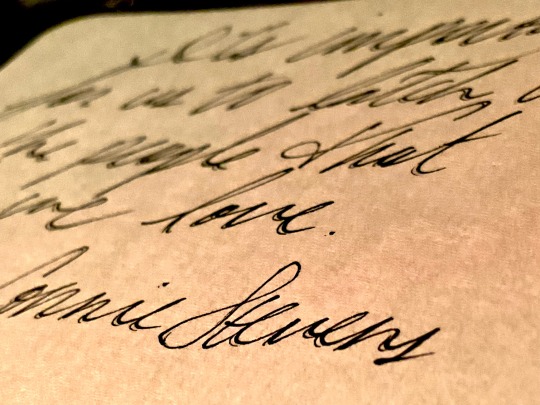 It's impor
for us to listen
the people that
we love.
Connie Stevens